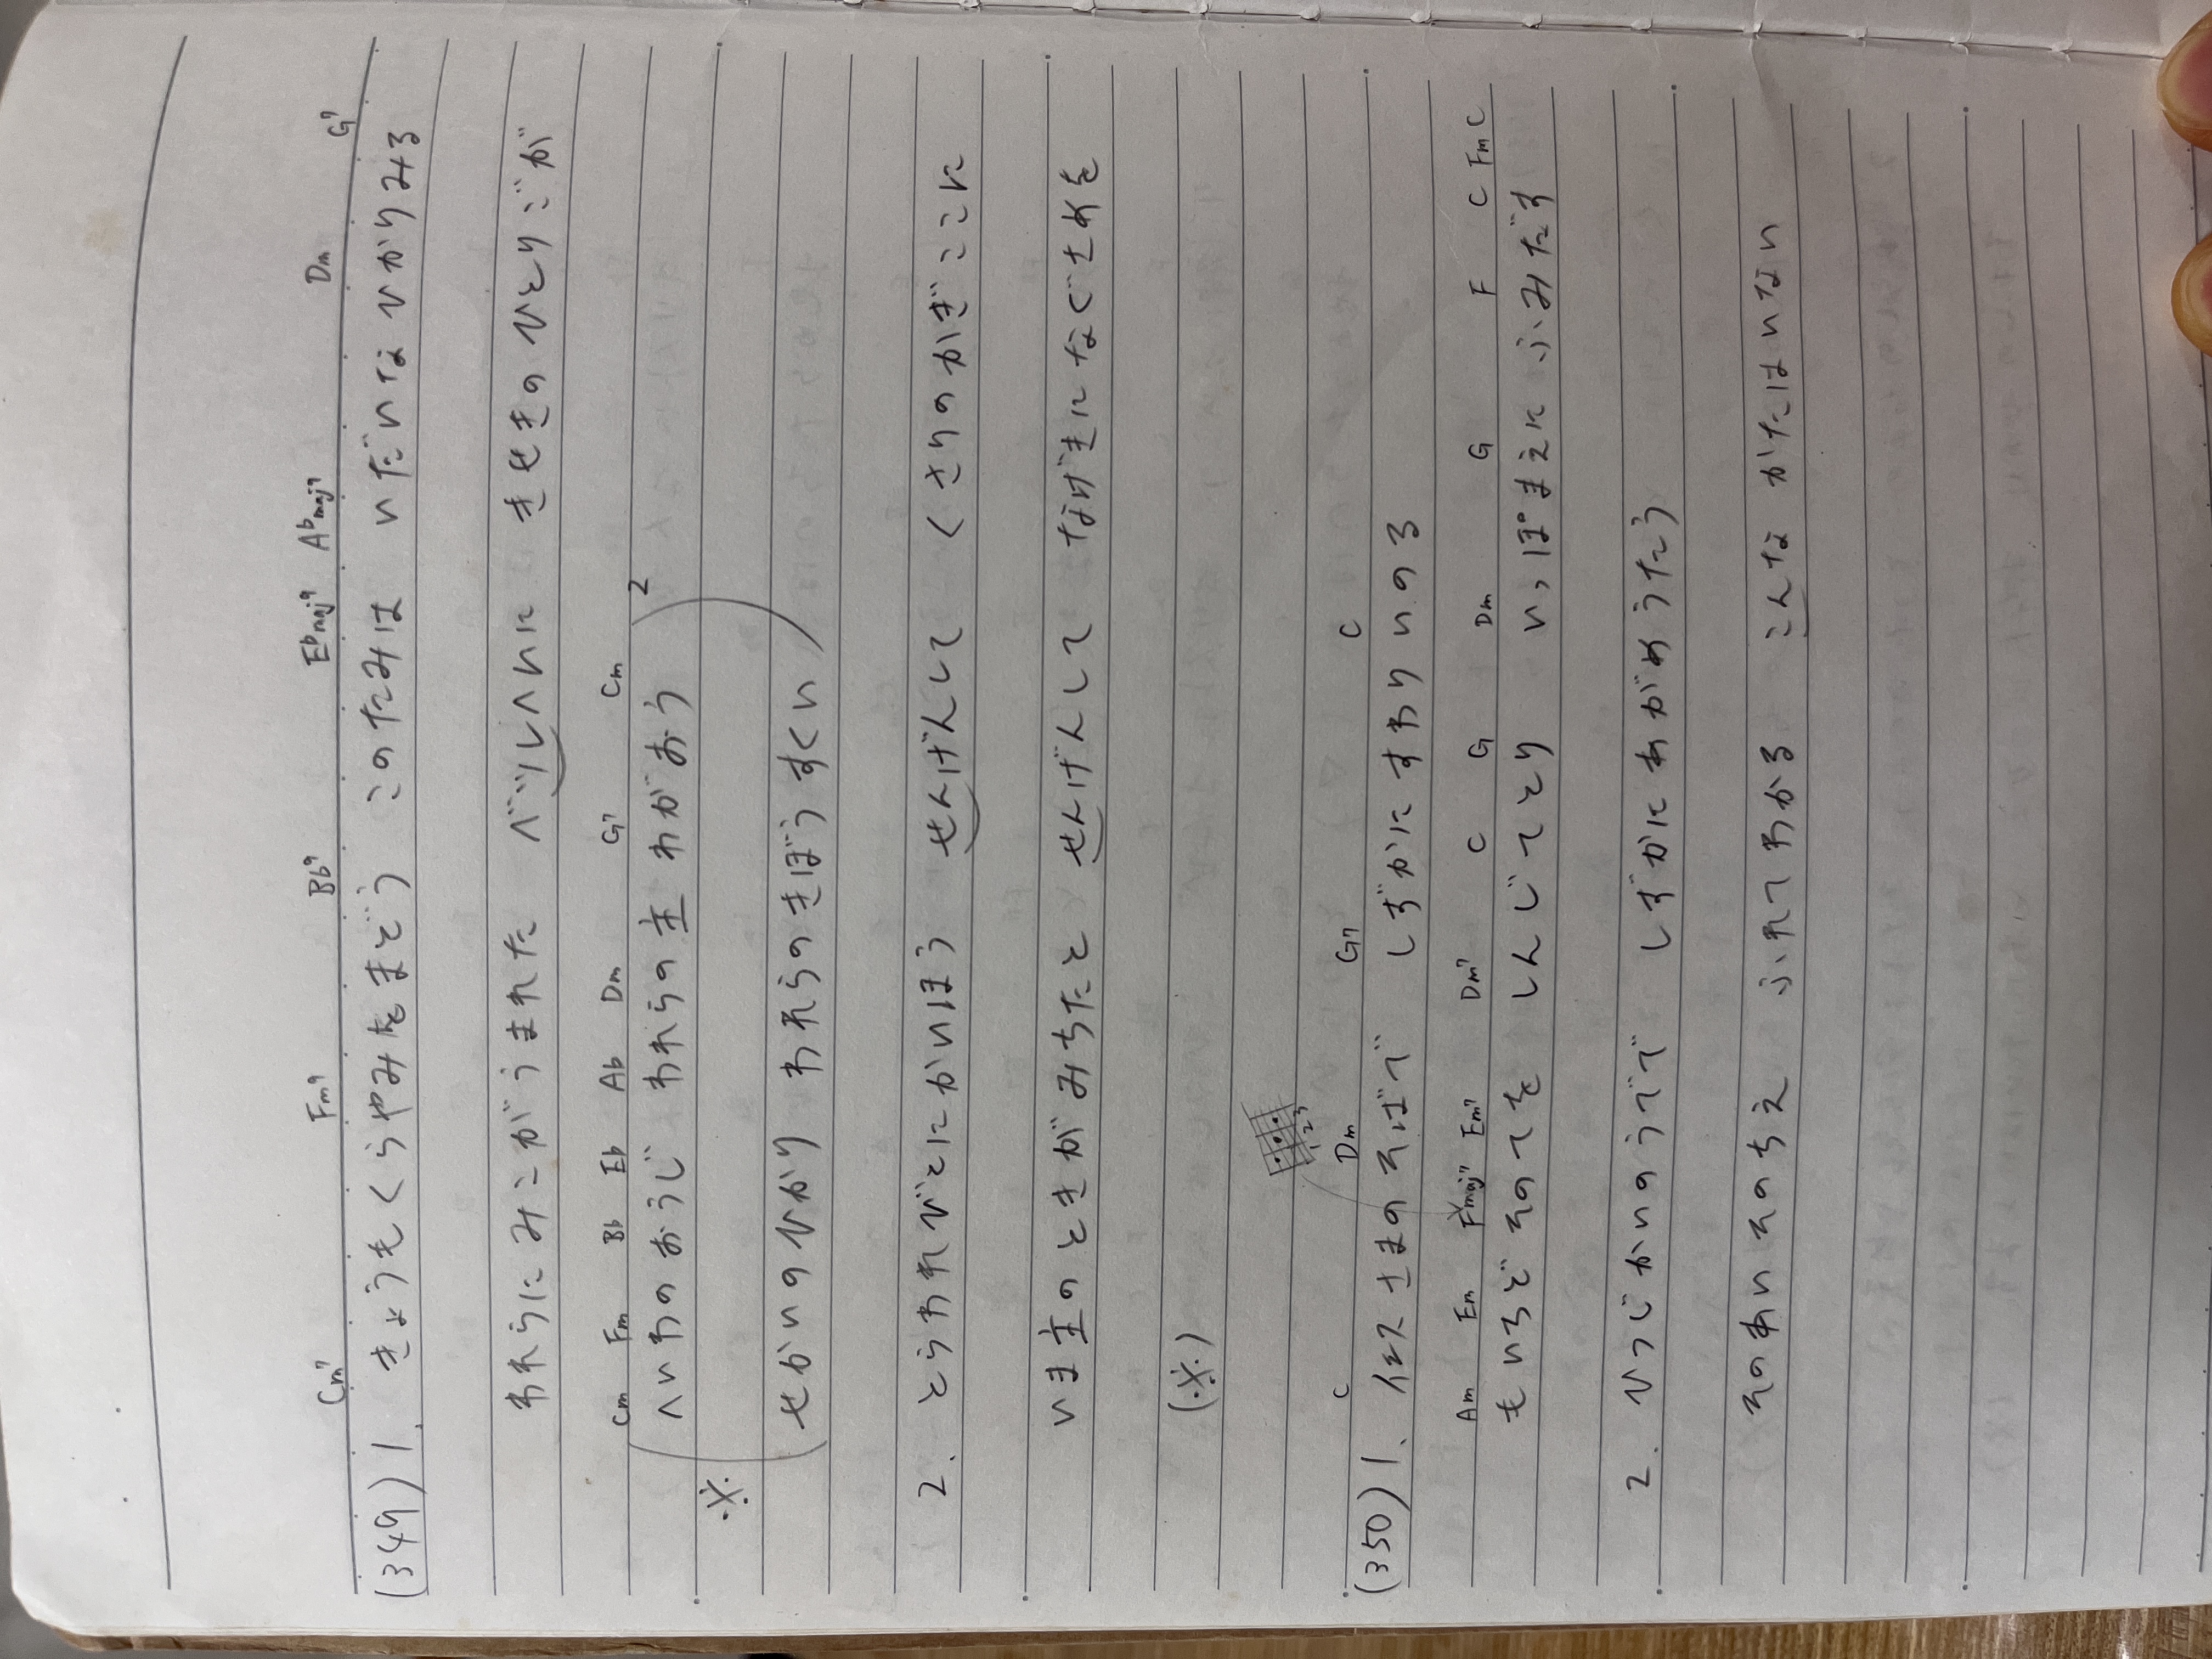 Cm7 Fm7 Bb7 Ebmaj7 Abmaj7 Dm G7
(349) 1. きょうもくらやみをまどう このたみは いだいなひかりみる
われらにみこがうまれた ベツレヘムに きせきのひとりごが
Cm Fm Bb Eb Ab Dm G7 Cm
※ (へいわのおうじ われらの主 わがおう
せかいのひかり われらのきぼう すくい)2
2. とらわれびとにかいほう せんげんして くさりのかぎここに
いま主のときがみちたと せんげんして なげきになぐさめを
(※)
1 2 3
C Dm G7 C
(350) 1. イエスさまのそばで しずかにすわりいのる
Am Em Fmaj7 Em7 Dm7 C G Dm G F C Fm C
もいちどそのてを しんじてとり いっぽまえにふみだす
2. ひつじかいのうでで しずかにあがめうたう
そのあいそのちえ ふれてわかる こんなかたはいない